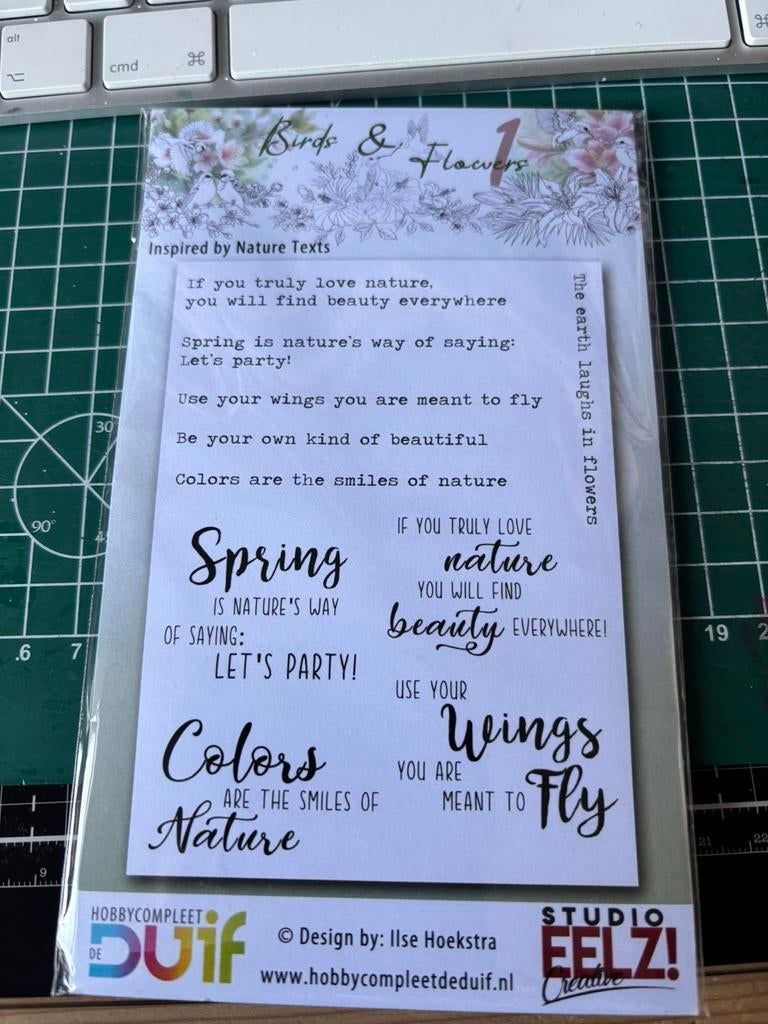 alt
⌥
cmd
⌘
⌘
Birds & Flowers 1
Inspired by Nature Texts
If you truly love nature,
you will find beauty everywhere
Spring is nature's way of saying:
Let's party!
Use your wings you are meant to fly
Be your own kind of beautiful
Colors are the smiles of nature
The earth laughs in flowers
Spring
IS NATURE'S WAY
OF SAYING:
LET'S PARTY!
IF YOU TRULY LOVE
nature
YOU WILL FIND
beauty EVERYWHERE!
Colors
ARE THE SMILES OF
Nature
USE YOUR
Wings
YOU ARE
MEANT TO Fly
HOBBYCOMPLEET
DE DUIF
© Design by: Ilse Hoekstra
www.hobbycompleetdeduif.nl
STUDIO
EELZ!
Creative
30°
90°
.6
7
19
9
21
22